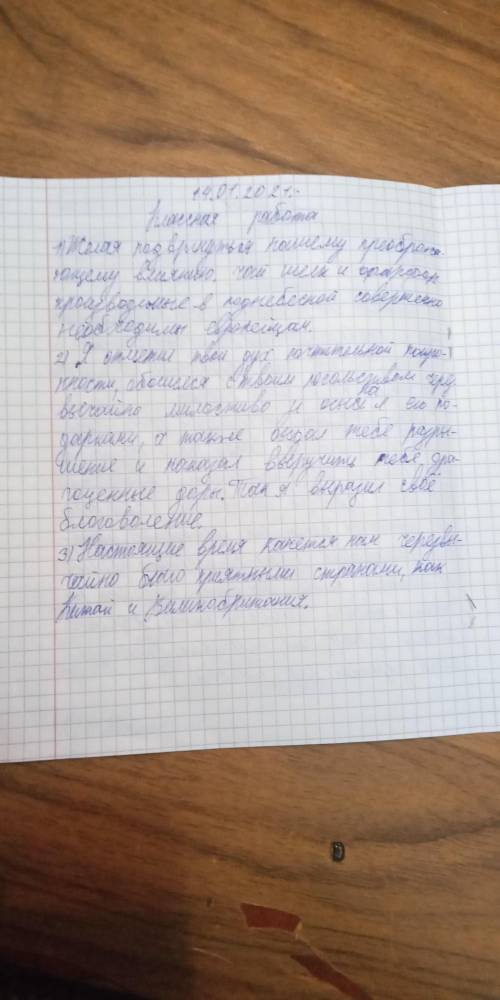 14.01.2021г.
Классная работа
1) Желая подвергнуться нашему преобража-
ющему влиянию. Чай шелк и фарфор
производимые в поднебесной совершенно
необходимы европейцам.
2) Я отметил твой дух почтительной покор-
ности, обошелся с твоим посольством чрез
вычайно милостиво и осыпал его по-
дарками, а также выдал тебе
и наказал вверучить тебе дра-
гоценные дары. Так я выразил своё
благоволение.
3) Настоящие время кажется нам черезвы-
чайно было приятными странами, как
Китай и Великобритания.